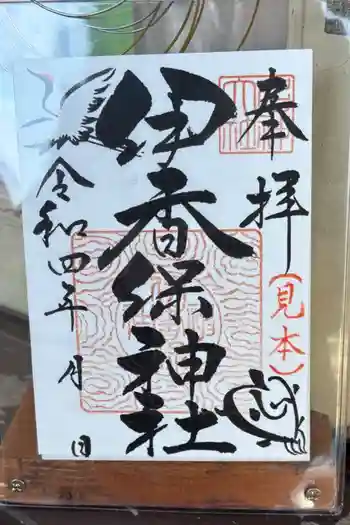 奉拝
(見本)
伊香保神社
令和四年 月 日